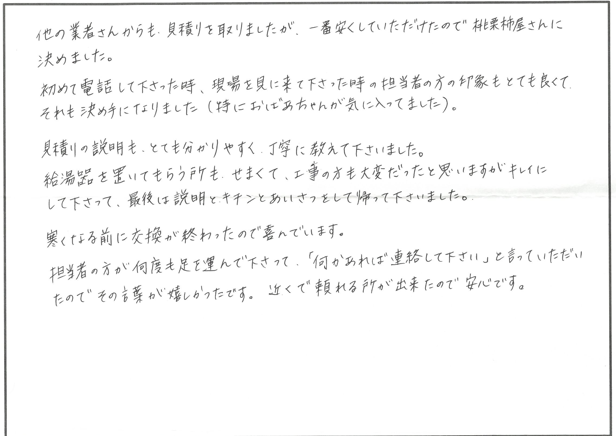 他の業者さんからも、見積りを取りましたが、一番安くしていただけたので桃栗柿屋さんに
決めました。
初めて電話して下さった時、現場を見に来て下さった時の担当者の方の印象もとても良くて、
それも決め手になりました(特におばあちゃんが気に入ってました)。
見積りの説明も、とても分かりやすく、丁寧に教えて下さいました。
給湯器を置いてもらう所も、せまくて、工事の方も大変だったと思いますがキレイに
して下さって、最後は説明とキチンとあいさつをして帰って下さいました。
寒くなる前に交換が終わったので喜んでいます。
担当者の方が何度も足を運んで下さって、「何かあれば連絡して下さい」と言っていただい
たのでその言葉が嬉しかったです。 近くで頼れる所が出来たので安心です。